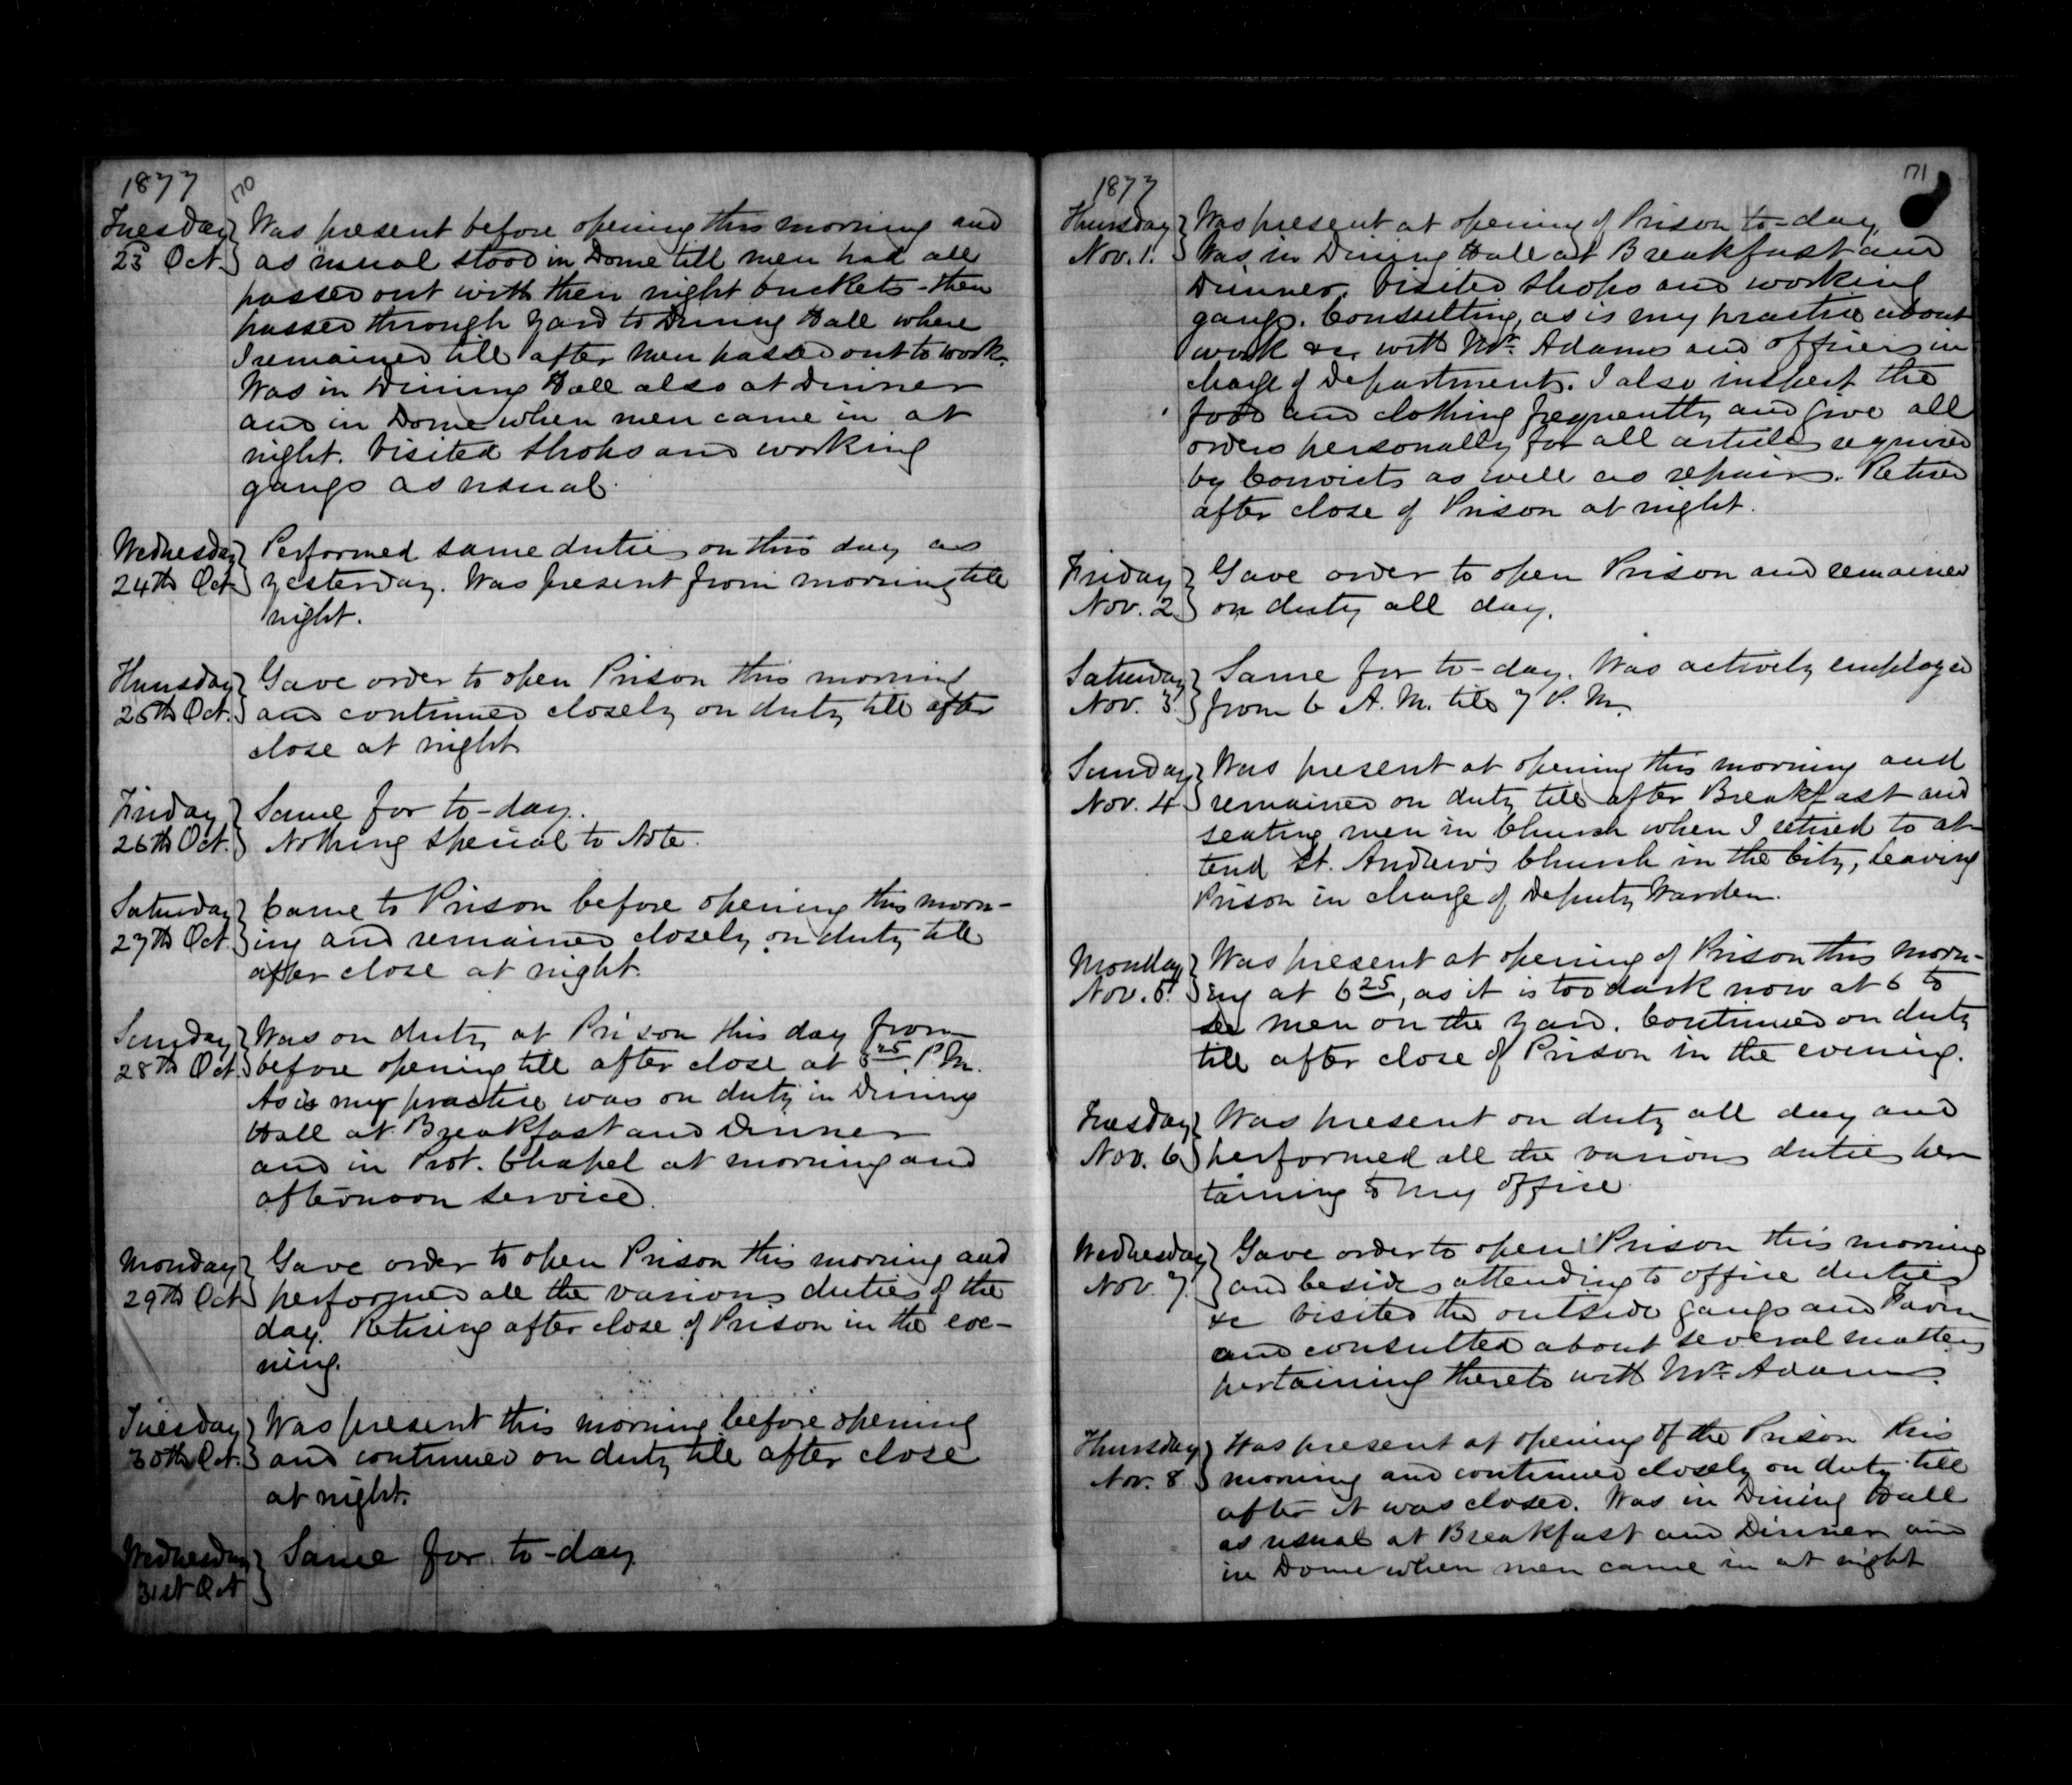 1877
170
Tuesday } Was present before opening this morning and
23 Oct. } as usual stood in Dome till men had all
passed out with their night buckets - then
passed through yard to Dining Hall where
I remained till after men passed out to work.
Was in Dining Hall also at Dinner
and in Dome when men came in at
night. Visited Shops and working
gangs as usual.
Wednesday } Performed same duties on this day as
24th Oct. } yesterday. Was present from morning till
night.
Thursday } Gave order to open Prison this morning
25th Oct. } and continued closely on duty till after
close at night
Friday } Same for to-day.
26th Oct. } Nothing special to Note.
Saturday } Came to Prison before opening this morn-
27th Oct. } ing and remained closely on duty till
after close at night.
Sunday } Was on duty at Prison this day from
28th Oct. } before opening till after close at 3 25 P.M.
As is my practice was on duty in Dining
Hall at Breakfast and Dinner
and in Prot. Chapel at morning and
afternoon service.
Monday } Gave order to open Prison this morning and
29th Oct. } performed all the various duties of the
day. Retiring after close of Prison in the eve-
ning.
Tuesday } Was present this morning before opening
30th Oct. } and continued on duty till after close
at night.
Wednesday } Same for to-day
31st Oct }
1877
171
Thursday } Was present at opening of Prison to-day,
Nov. 1. } Was in Dining Hall at Breakfast and
Dinner. Visited Shops and working
gangs. Consulting, as is my practice about
work &c, with Mr. Adams and officers in
charge of Departments. I also inspect the
food and clothing frequently and give all
orders personally for all articles required
by Convicts as well as repairs. Retired
after close of Prison at night.
Friday } Gave order to open Prison and remained
Nov. 2 } on duty all day.
Saturday } Same for to-day. Was actively employed
Nov. 3. } from 6 A.M. till 7 P.M.
Sunday } Was present at opening this morning and
Nov. 4 } remained on duty till after Breakfast and
seating men in Church when I retired to at-
tend St. Andrew's Church in the City, leaving
Prison in charge of Deputy Warden.
Monday } Was present at opening of Prison this morn-
Nov. 5. } ing at 6 25, as it is too dark now at 6 to
see men on the yard. Continued on duty
till after close of Prison in the evening.
Tuesday } Was present on duty all day and
Nov. 6 } performed all the various duties per
taining to my office.
Wednesday } Gave order to open Prison this morning
Nov. 7. } and besides attending to office duties
&c visited the outside gangs and Farm
and consulted about several matters
pertaining thereto with Mr. Adams.
Thursday } Was present at opening of the Prison this
Nov. 8 } morning and continued closely on duty till
after it was closed. Was in Dining Hall
as usual at Breakfast and Dinner and
in Dome when men came in at night